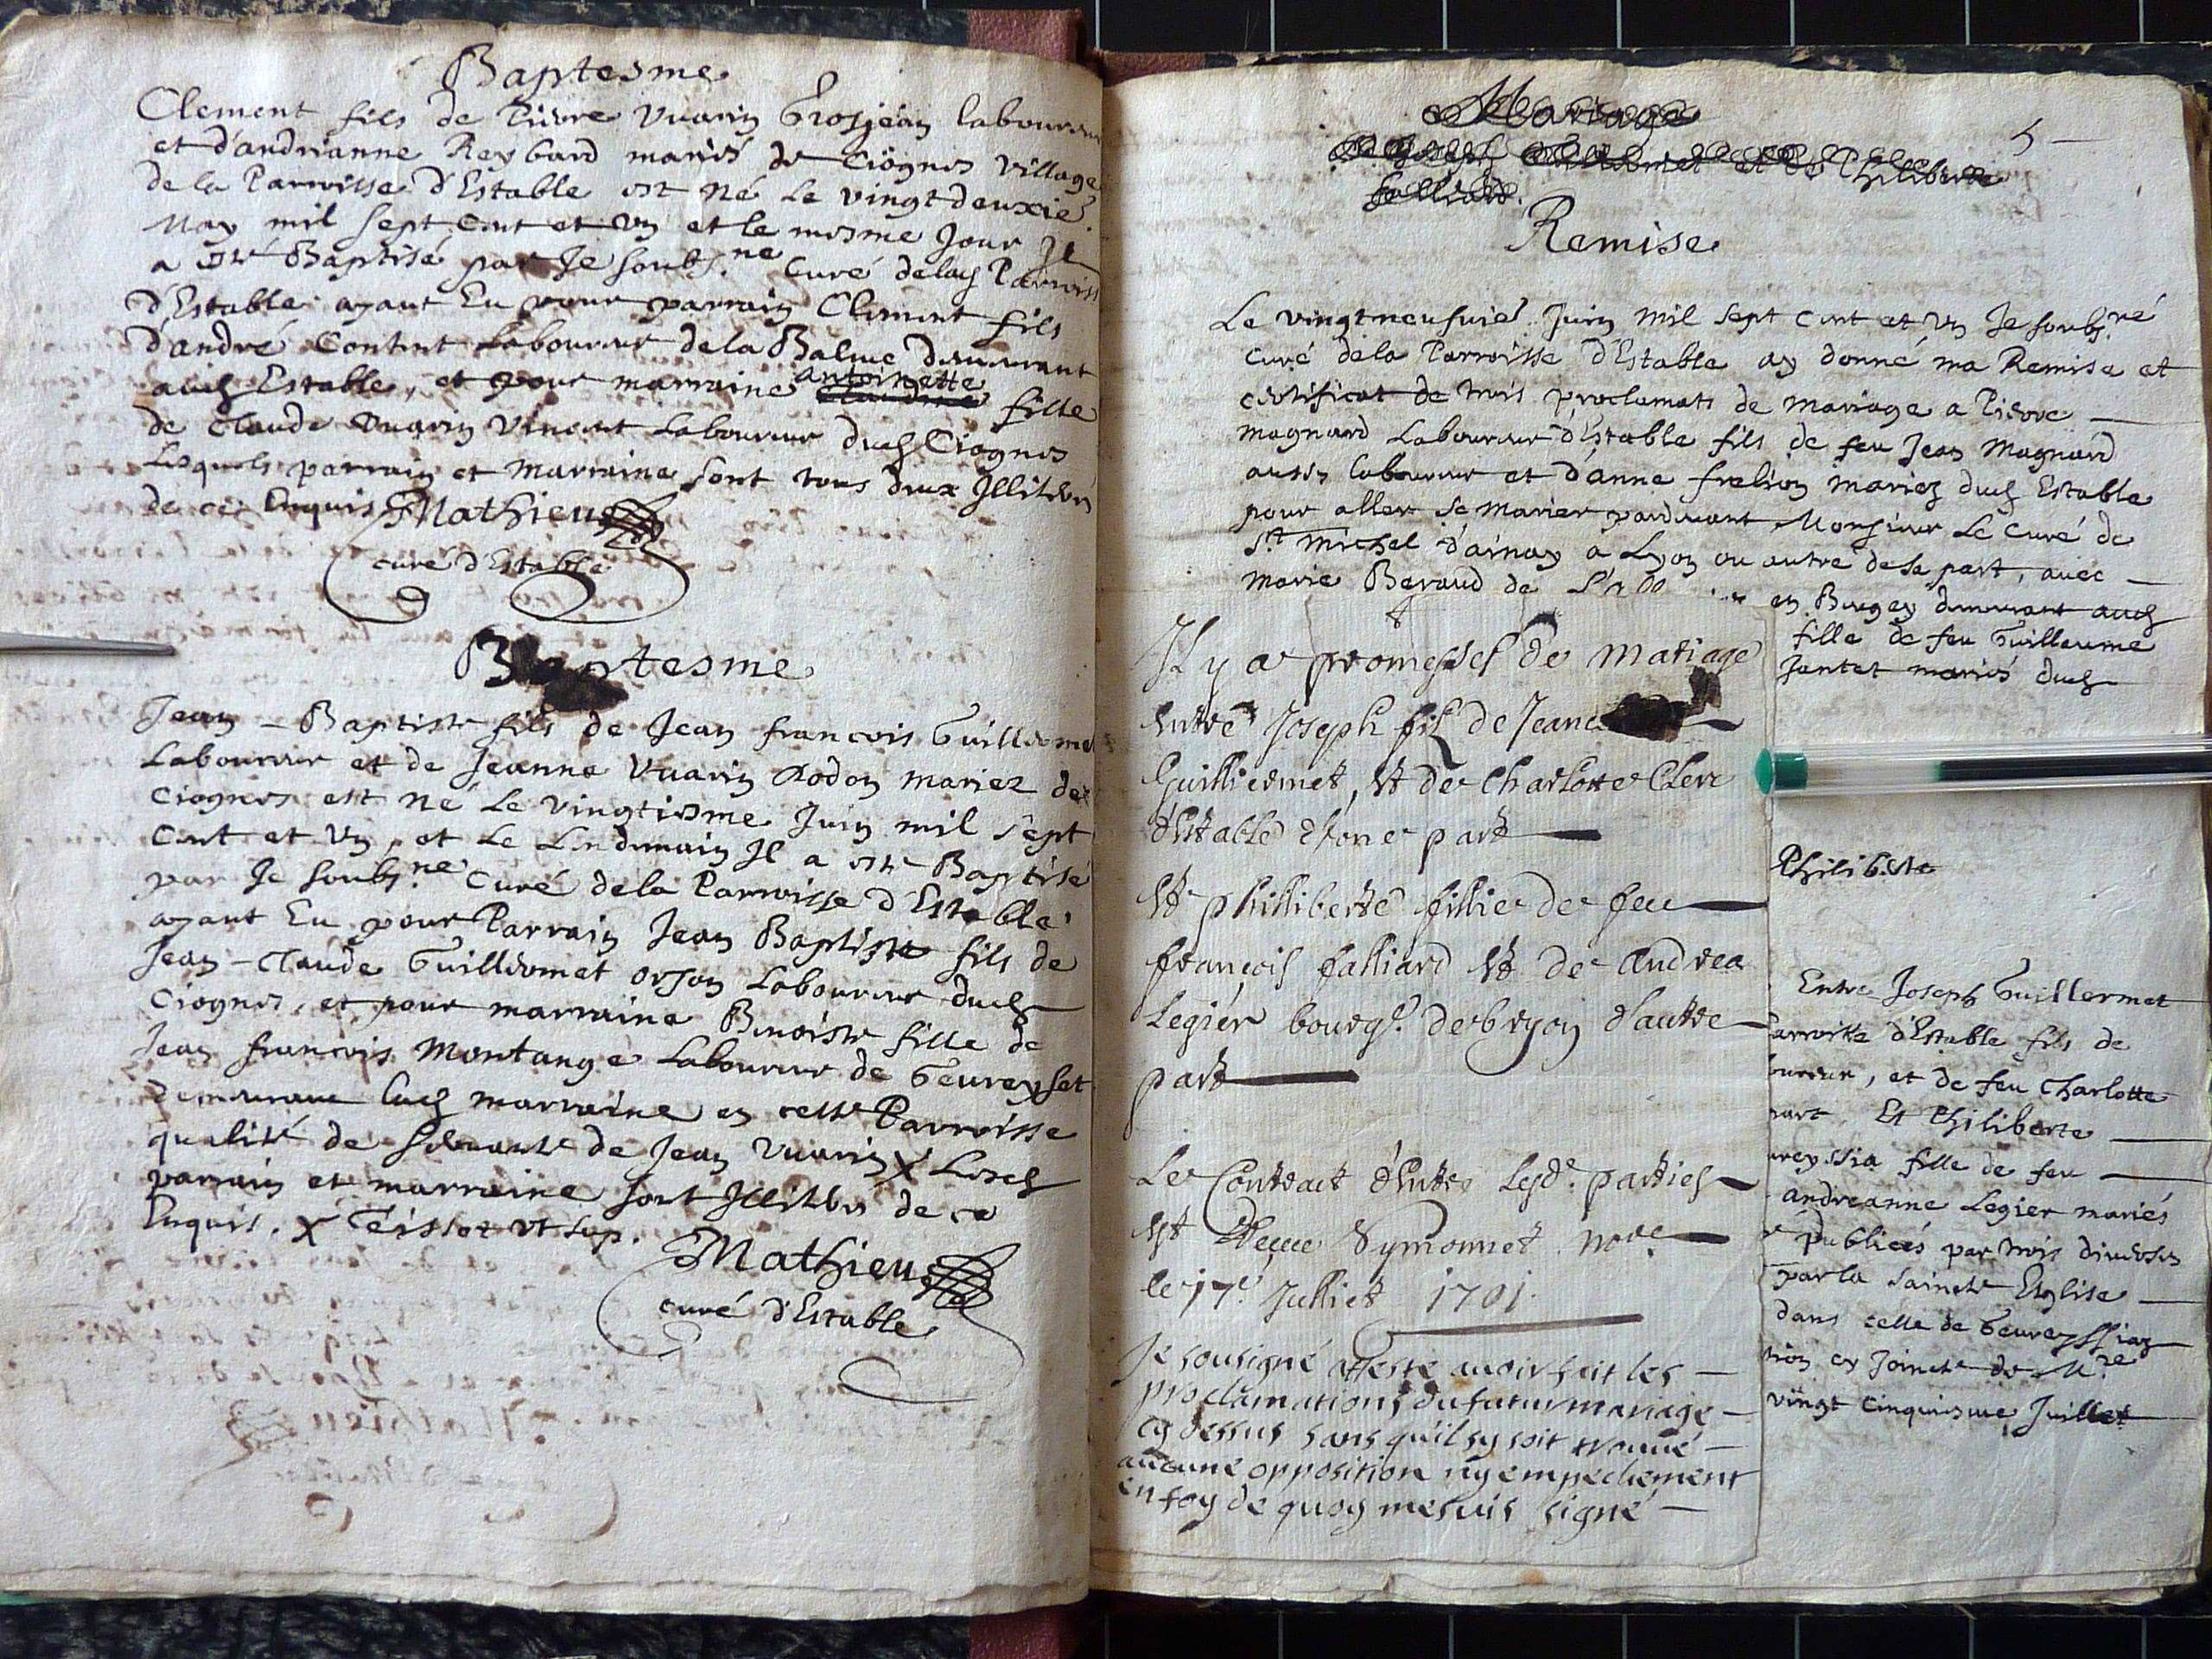 Baptesme
Clement fils de Pierre Vuarin Grosjean laboureur
et d'andrianne Reybard mariés de Ciögnes village
de la Parroisse d'Estable est né le vingtdeuxie.
May mil sept cent et vn et le mesme Jour Il
a esté Baptisé par Je soubs.né Curé delad Parroiss
d'Estable ayant Eu pour parrain Clement fils
d'andré Content Laboureur dela Balme demeurant
aud Estable, et pour marraine antoinette fille
de Claude Vuarin Vincent Laboureur dud Ciognes
Lesquels parrain et Marraine sont tous deux Illiterés
de ce Enquis Mathieu
curé d'Estable
Baptesme
Jean-Baptiste fils de Jean francois Guillermet
Laboureur et de Jeanne Vuarin Rodon mariez de
Ciognes est né Le vingtiesme Juin mil sept
Cent et Vn, et Le Lendemain Il a esté Baptisé
par Je soubs.né Curé dela Parroisse d'Estable
ayant Eu pour Parrain Jean Baptiste fils de
Jean-Claude Guillermet orson Laboureur dud
Ciognes, et pour marraine Benoiste fille de
Jean francois Montange Laboureur de Geureysset
demeurant Lad marraine en cette Parroisse
qualité de servante de Jean Vuarin X Lesd
parrain et marraine sont Illiterés de ce
Enquis. X Teissot vt sup.
Mathieu
curé d'Estable
Mariage
5
de Joseph Guillermet et de Philiberte
falliard.
Remise
Le vingtneufuie. Juin mil sept cent et vn Je soubs.né
Curé dela Parroisse d'Estable ay donné ma Remise et
certificat de trois proclamats de mariage a Pierre
Magnard Laboureur d'Estable fils de feu Jean Magnard
aussi laboureur et d'anne frelion mariez dud Estable
pour aller se marier pardeuant Monsieur Le Curé de
St Michel d'ainay a Lyon ou autre de sa part, auec
Marie Beraud de en Bugey demeurant aud
fille de feu Guillaume
Jantet mariés dud
Il y a promesses de mariage
Entre Joseph fils de Jean
Guilliermet, Et de Charlotte Clerc
d'Estable d'une part
Et philliberte fillie de feu
françois falliard Et de Andrea
Legier bourg.s debryon d'autre
part
Le Contract d'Entre lesd. parties
Est Reçeu Symonnet no.re
le 17.e Julliet 1701.
Je sousigné atteste auoir fait les
proclamations du futur mariage
cy dessus sans qu'il sy soit trouué
aucune opposition ny empechement
en foy de quoy me suis signé
Philiberte
Entre Joseph Guillermet
arroisse d'Estable fils de
oureur, et de feu Charlotte
part. Et Philiberte
ureyssia fille de feu
andreanne Legier mariés
Publiées par trois diuerses
par la Saincte Esglise
dans celle de Geureyssiaz
tion cy Jointe de M.re
vingt cinquiesme Juillet